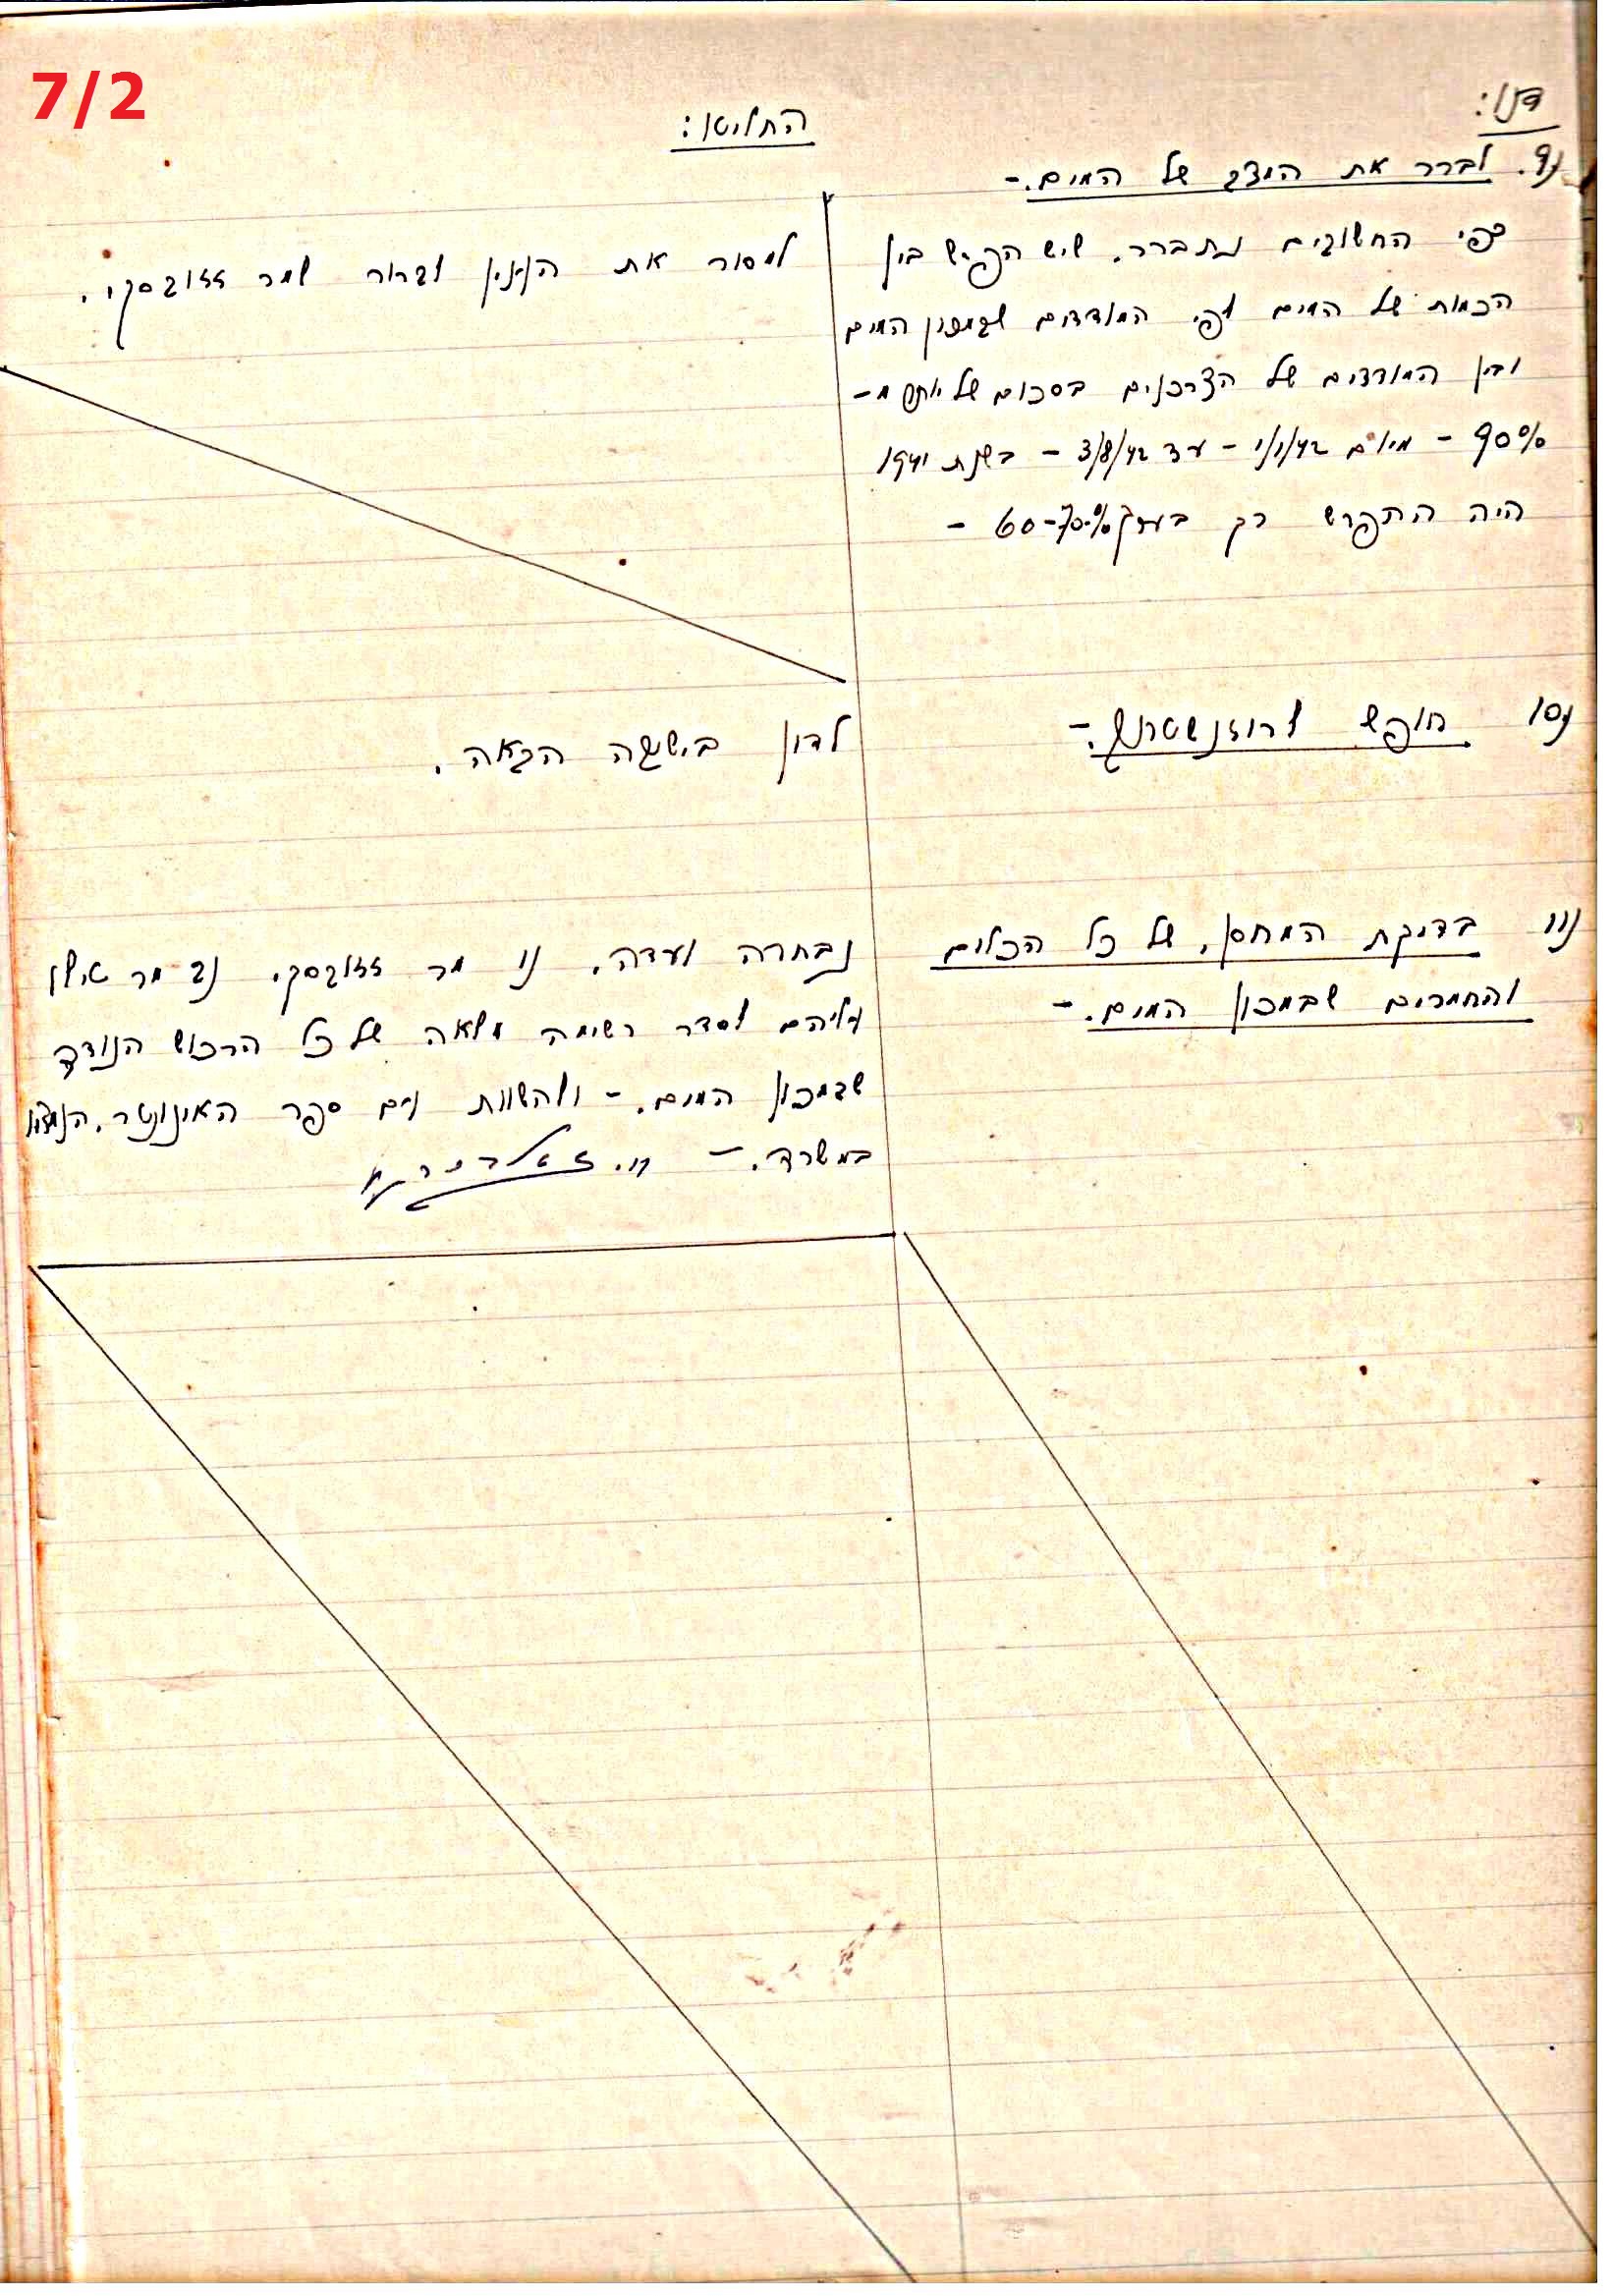 7/2
דנו:
9. לברר את המצב של המים.-
כפי החשובים נתברר, שיש הפרש בין
הכמות של המים לפי המודדים שבמכון המים
ובין המודדים של הצרכנים בסכום של יותר מ-
90% - מיום 1/1/42 - עד 3/8/42 - בשנת 1941
היה ההפרש רק בערך 60-70% -
10 חופש לרוזנשטרוף.-
11 בדיקת המחסן, של כל הכלים
והחמרים שבמכון המים.-
החליטו:
למסור את הענין לברור למר
לדון בישיבה הבאה.
נבחרה ועדה, 1) מר 2) מר
עליהם לסדר רשימה מלאה של כל הרכוש הנודד
שבמכון המים.- ולהשוות עם ספר האינונטר, הנמצא
במשרד.-